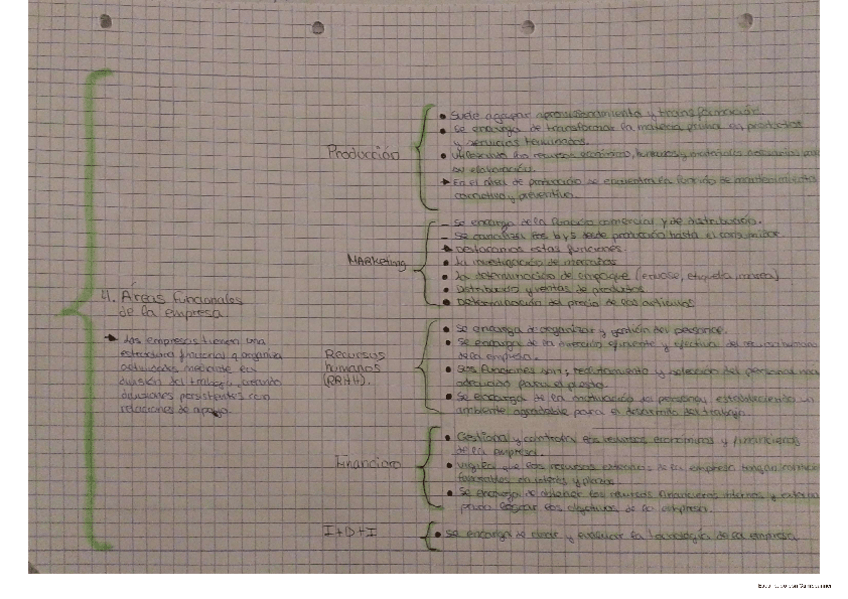 • Suele agrupar aprovisionamiento y transformación.
• Se encarga de transformar la materia prima en productos
y servicios terminados.
Producción
• Utilizando los recursos económicos, humanos y materiales necesarios para
su elaboración.
→ En el área de producción se encuentra la función de mantenimiento
correctivo y preventivo.
– Se encarga de la función comercial y de distribución.
– Se canaliza los b y s desde producción hasta el consumidor.
→ Destacamos estas funciones.
Marketing
• La investigación de mercados
• La determinación de empaque (envase, etiqueta, marca)
• Distribución y ventas de productos
• Determinación del precio de los artículos
4. Áreas funcionales
de la empresa
→ Las empresas tienen una
estructura funcional q organiza
actividades mediante en
división del trabajo, creando
divisiones persistentes con
relaciones de apoyo.
• Se encarga de organizar y gestión del personal.
• Se encarga de la eficiente y efectiva del recurso humano
de la empresa.
Recursos
humanos
(RRHH).
• Sus funciones son; reclutamiento y selección del personal más
adecuado para el puesto.
• Se encarga de la motivación de personas, estableciendo un
ambiente agradable para el desarrollo del trabajo.
• Gestiona y controla los recursos económicos y financieros
de la empresa.
Financiero
• Vigila que los recursos externos de la empresa tengan
favorables en interés y plazos
• Se encarga de obtener los recursos financieros internos y externos
para lograr los objetivos de la empresa.
I+D+I
• Se encarga de crear y evaluar la tecnología de la empresa